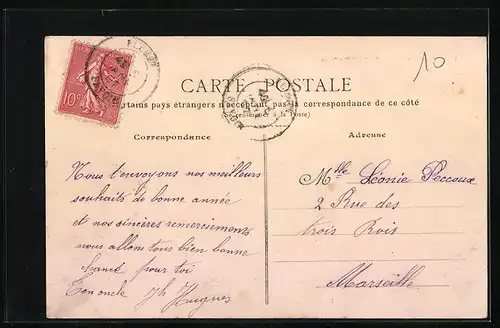 10
CARTE POSTALE
tains pays étrangers n'acceptent pas la correspondance de ce côté
(renseigner à la Poste)
Correspondance
Adresse
10c
Nous t'envoyons nos meilleurs
souhaits de bonne année
et nos sincères remerciements
nous allons tous bien bonne
santé pour toi
Ton oncle Jh Hugues
Mlle Léonie Peccoux
2 Rue des
trois Rois
Marseille